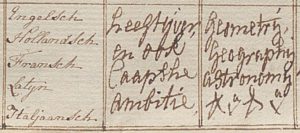 Engelsch
Hollandsch
Fransch
Latyn
Italjaansch
Leestijver,
en ook
Caapshe
Ambitie.
Geometrÿ,
Geographÿ
astronomÿ